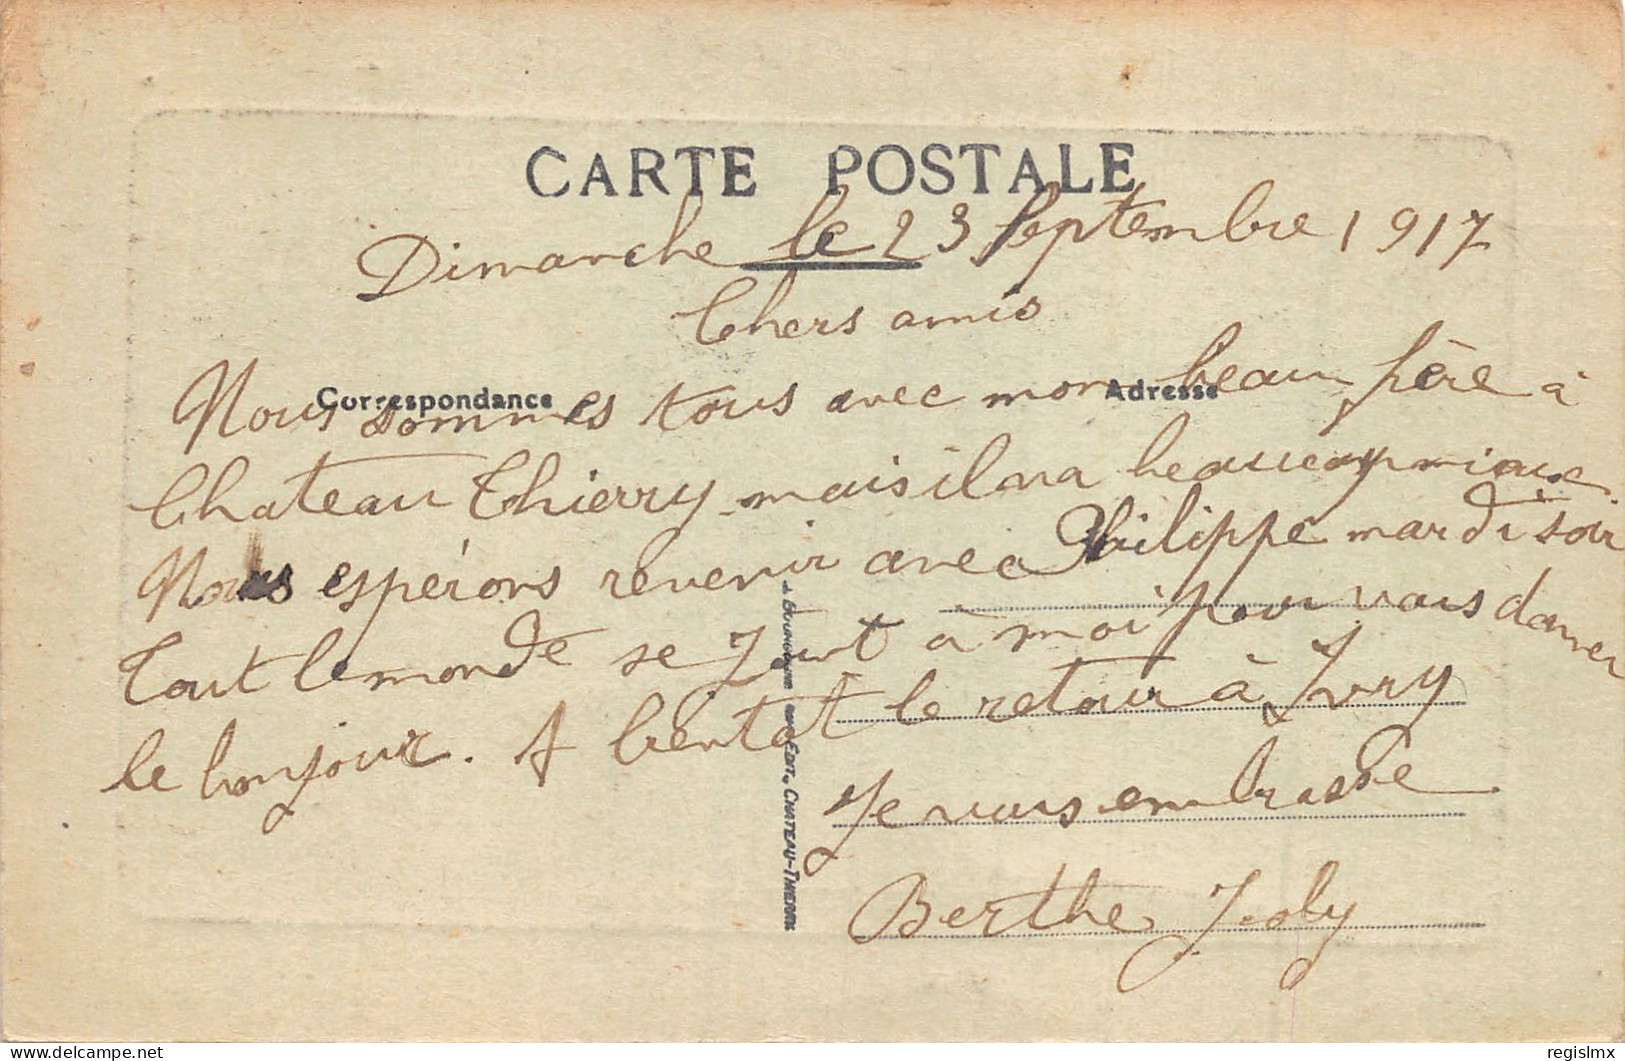 CARTE POSTALE
Dimanche le 23 Septembre 1917
Chers amis
Correspondance
Adresse
Nous sommes tous avec mon beau père à
Chateau Thierry mais il va beaucoup mieux
Nous espérons revenir avec Philippe mardi soir
Tout le monde se joint à moi pour vous donner
le bonjour. A bientot le retour à Ivry
Je vous embrasse
Berthe Joly
EDIT., CHATEAU-THIERRY
delcampe.net
regislmx